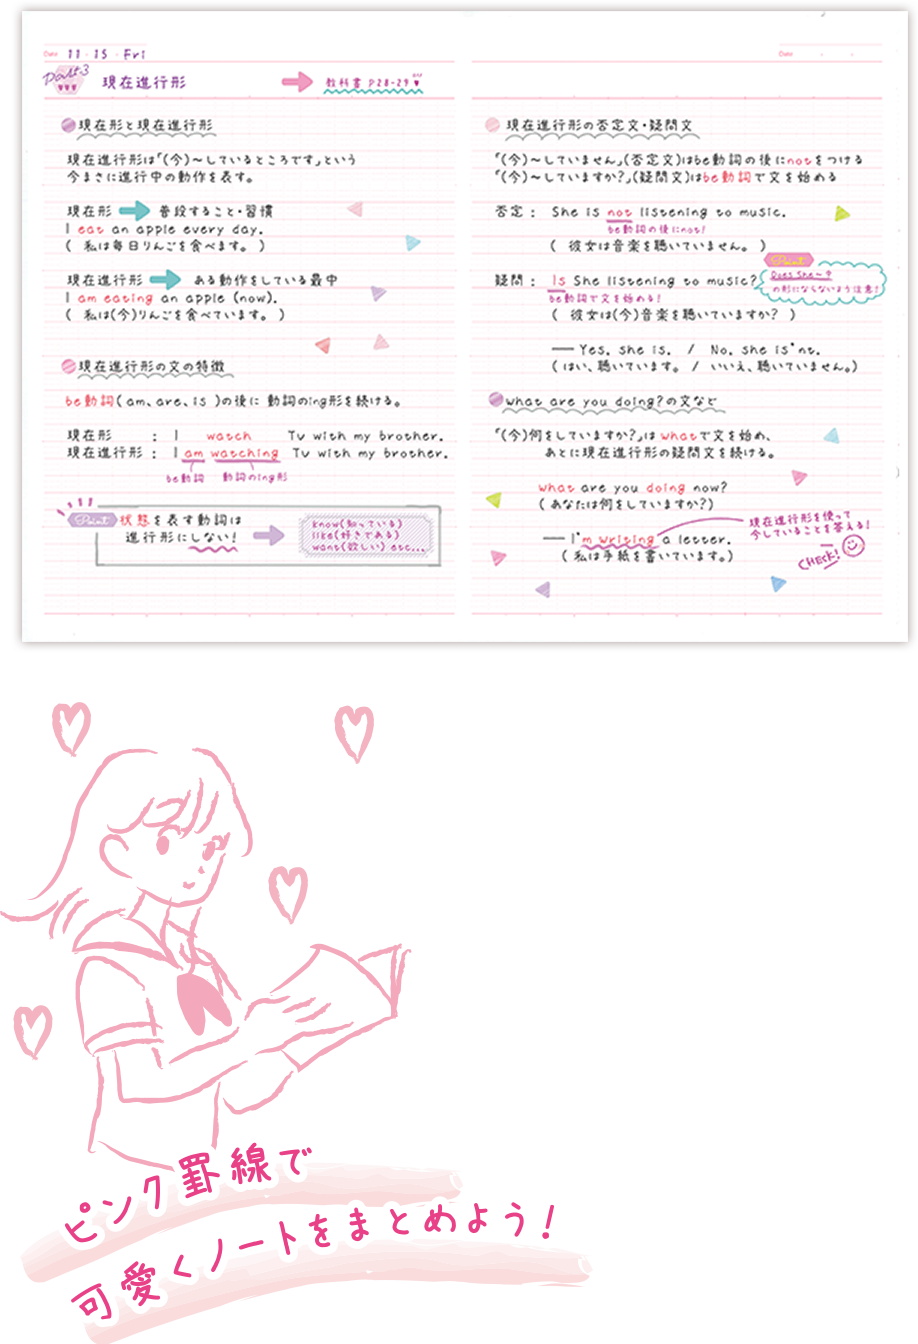 Date 11・15・Fri
Part3 現在進行形 教科書 P28-29
現在形と現在進行形
現在進行形は「(今)〜しているところです」という
今まさに進行中の動作を表す。
現在形 普段すること・習慣
I eat an apple every day.
( 私は毎日りんごを食べます。 )
現在進行形 ある動作をしている最中
I am eating an apple (now).
( 私は(今)りんごを食べています。 )
現在進行形の文の特徴
be動詞( am、are、is )の後に 動詞のing形を続ける。
現在形 : I watch Tv with my brother.
現在進行形 : I am watching Tv with my brother.
be動詞 動詞のing形
Point 状態を表す動詞は
進行形にしない!
know(知っている)
like(好きである)
want(欲しい) etc...
Date
現在進行形の否定文・疑問文
「(今)〜していません」(否定文)はbe動詞の後にnotをつける
「(今)〜していますか?」(疑問文)はbe動詞で文を始める
否定 : She is not listening to music.
be動詞の後にnot!
( 彼女は音楽を聴いていません。 )
Point
疑問 : Is She listening to music?
Does She〜?
の形にならないよう注意!
be動詞で文を始める!
( 彼女は(今)音楽を聴いていますか? )
── Yes, she is. / No, she is'nt.
( はい、聴いています。 / いいえ、聴いていません。)
what are you doing?の文など
「(今)何をしていますか?」は whatで文を始め、
あとに現在進行形の疑問文を続ける。
what are you doing now?
( あなたは何をしていますか?)
現在進行形を使って
今していることを答える!
── I'm writing a letter.
( 私は手紙を書いています。)
CHECK!
ピンク罫線で
可愛くノートをまとめよう!